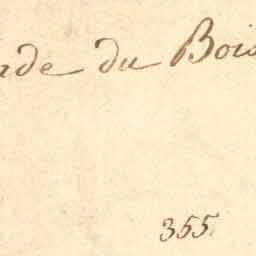 ade du Bois
355